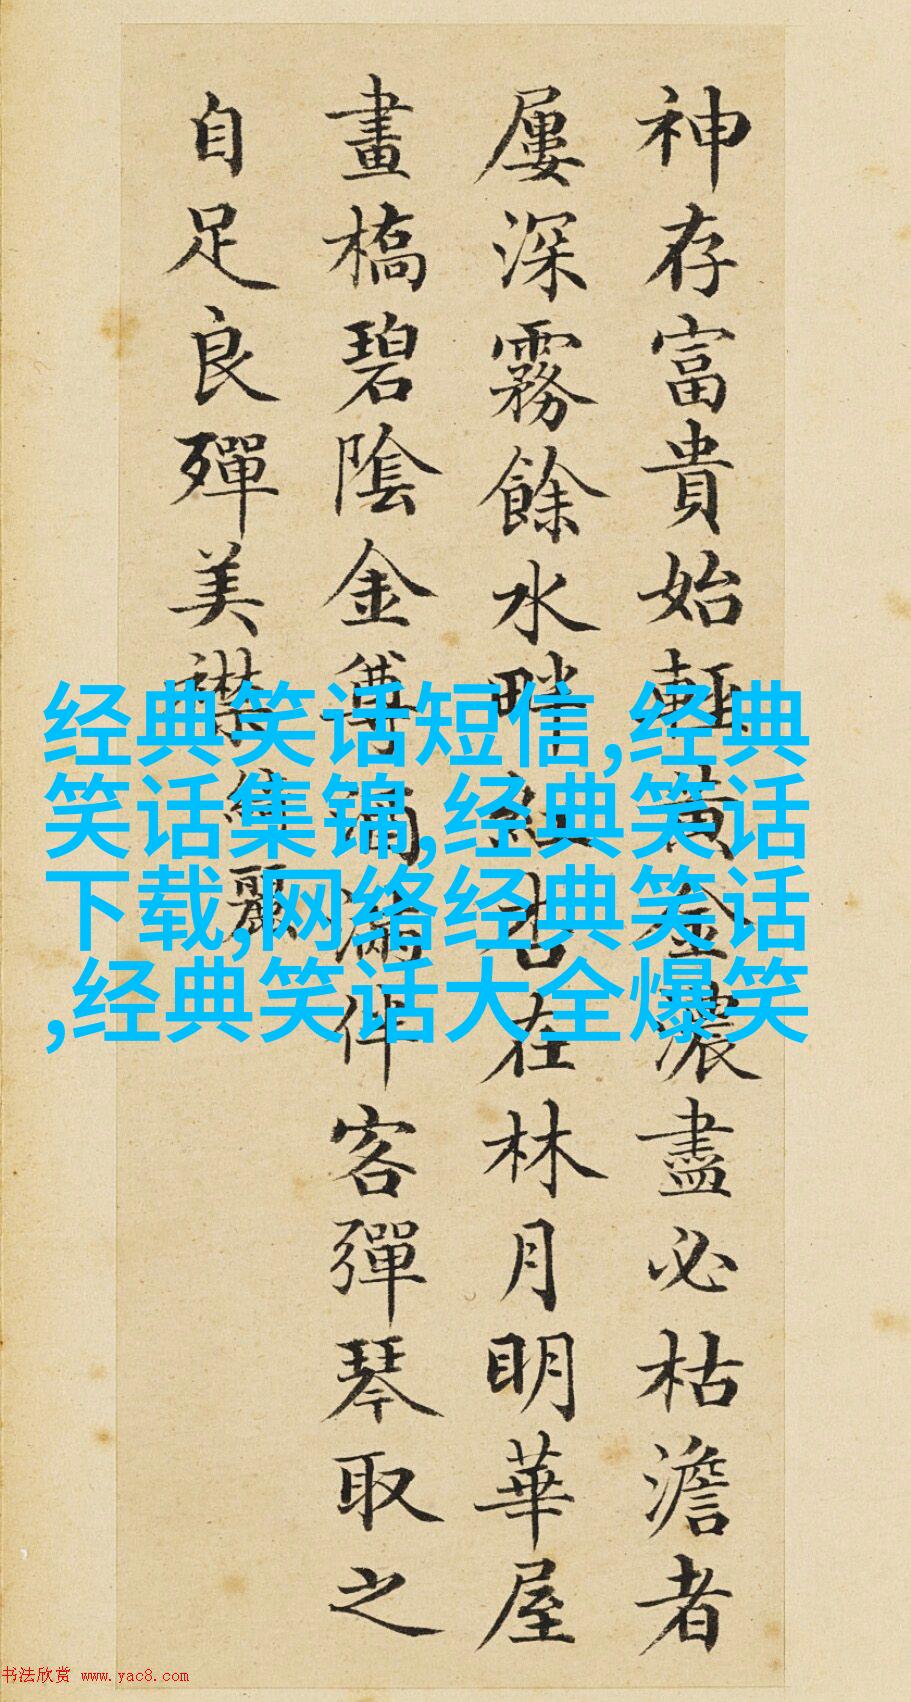 神存富貴始輕黃金濃盡必枯澹者
屢深霧餘水畔紅杏在林月明華屋
畫橋碧陰金尊滿伴客彈琴取之
自足良殫美襟綺麗
经典笑话短信,经典
笑话集锦,经典笑话
下载,网络经典笑话
,经典笑话大全爆笑
书法欣赏 www.yac8.com